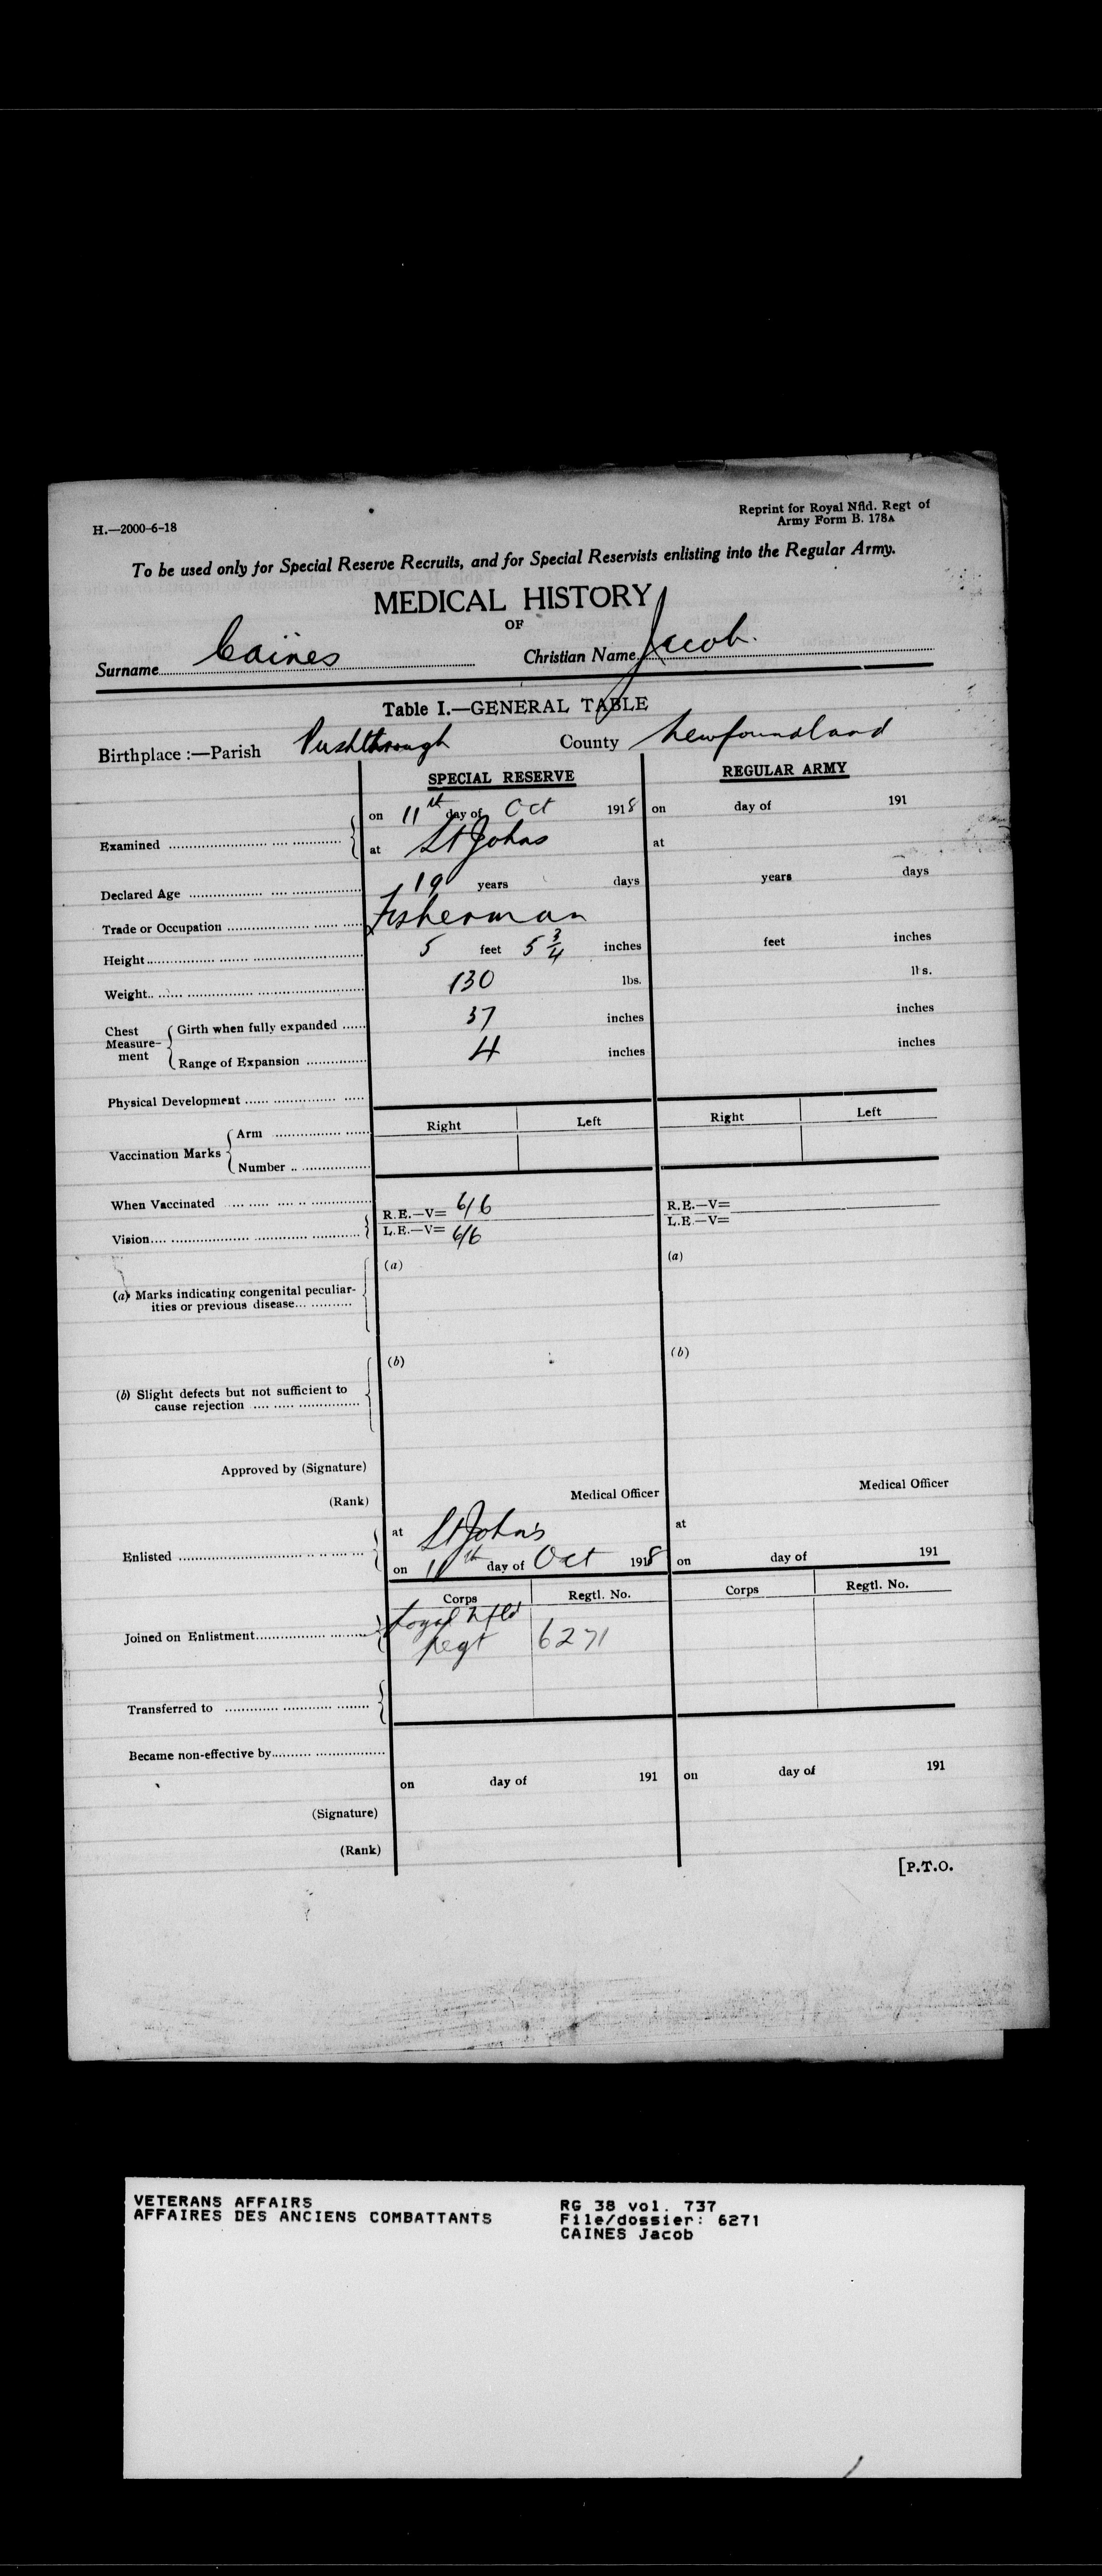 H.—2000-6-18
Reprint for Royal Nfld. Regt of
Army Form B. 178A
To be used only for Special Reserve Recruits, and for Special Reservists enlisting into the Regular Army.
MEDICAL HISTORY
OF
Surname Caines Christian Name Jacob.
Table I.—GENERAL TABLE
Birthplace :—Parish Pushthrough County Newfoundland
SPECIAL RESERVE REGULAR ARMY
Examined on 11th day of Oct 1918 on day of 191
at St Johns at
Declared Age 19 years days years days
Trade or Occupation Fisherman
Height 5 feet 5 3/4 inches feet inches
Weight 130 lbs. lbs.
Chest Measure-ment Girth when fully expanded 37 inches inches
Range of Expansion 4 inches inches
Physical Development
Right Left Right Left
Vaccination Marks Arm
Number
When Vaccinated
Vision R.E.—V= 6/6 R.E.—V=
L.E.—V= 6/6 L.E.—V=
(a) Marks indicating congenital peculiar-
ities or previous disease (a) (a)
(b) Slight defects but not sufficient to
cause rejection (b) (b)
Approved by (Signature)
(Rank) Medical Officer Medical Officer
Enlisted at St John's at
on 11th day of Oct 1918 on day of 191
Corps Regtl. No. Corps Regtl. No.
Joined on Enlistment Royal Nfld
Regt 6271
Transferred to
Became non-effective by
on day of 191 on day of 191
(Signature)
(Rank)
[P.T.O.
VETERANS AFFAIRS RG 38 vol. 737
AFFAIRES DES ANCIENS COMBATTANTS File/dossier: 6271
CAINES Jacob